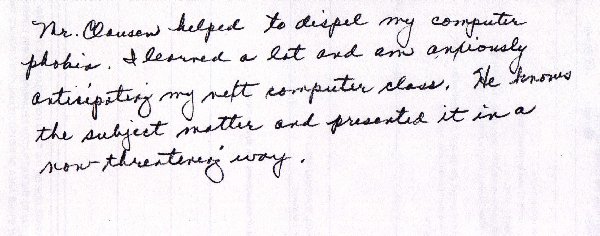 Mr. Clausen helped to dispel my computer
phobia. I learned a lot and am anxiously
anticipating my next computer class. He knows
the subject matter and presented it in a
non-threatening way.